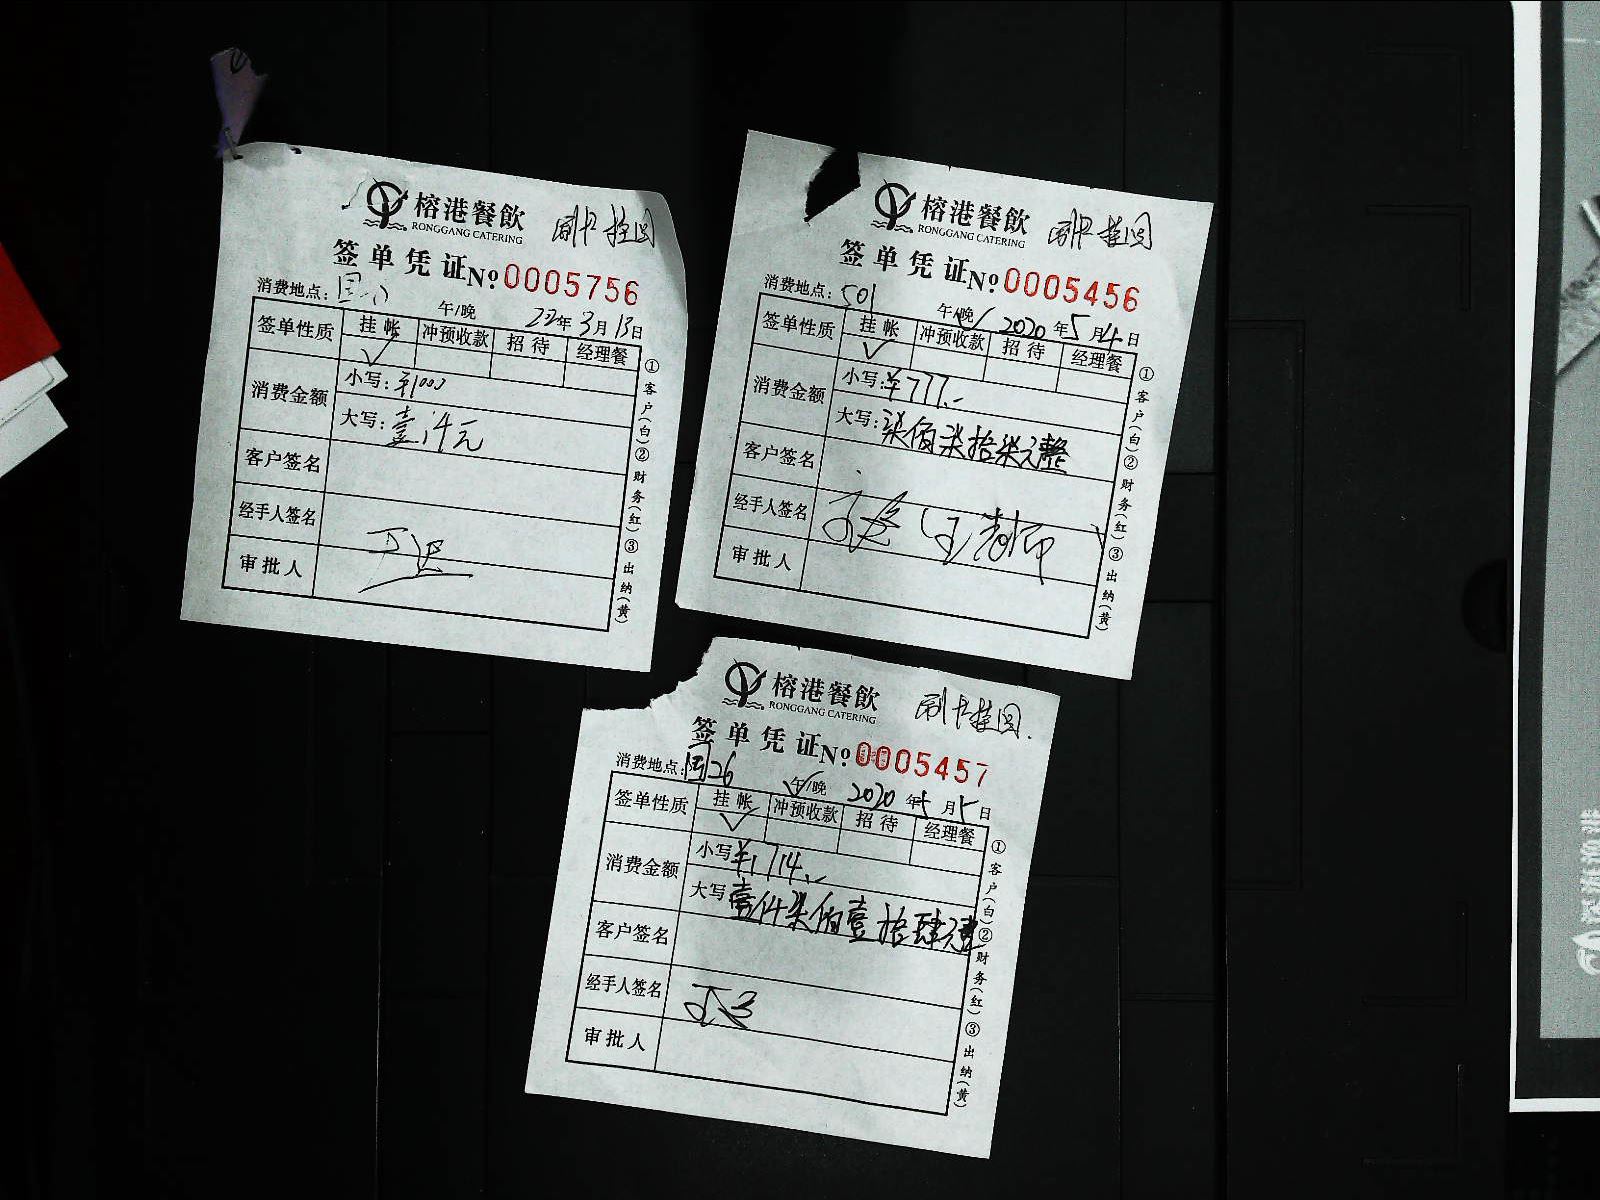 榕港餐飲
RONGGANG CATERING
刷卡挂园
签单凭证 No 0005756
消费地点:
午/晚 22年3月13日
签单性质 挂帐 冲预收款 招待 经理餐
✓
消费金额 小写: ¥1000
大写: 壹仟元
客户签名
经手人签名
审批人
①客户(白)②财务(红)③出纳(黄)
榕港餐飲
RONGGANG CATERING
刷卡挂园
签单凭证 No 0005456
消费地点: 501
午/晚✓ 2020年5月4日
签单性质 挂帐 冲预收款 招待 经理餐
✓
消费金额 小写: ¥777.-
大写: 柒佰柒拾柒元整
客户签名
经手人签名 王老师
审批人
①客户(白)②财务(红)③出纳(黄)
榕港餐飲
RONGGANG CATERING
刷卡挂园.
签单凭证 No 0005457
消费地点: 园26
午✓/晚 2020年5月5日
签单性质 挂帐 冲预收款 招待 经理餐
✓
消费金额 小写 ¥1714.-
大写 壹仟柒佰壹拾肆元整
客户签名
经手人签名
审批人
①客户(白)②财务(红)③出纳(黄)